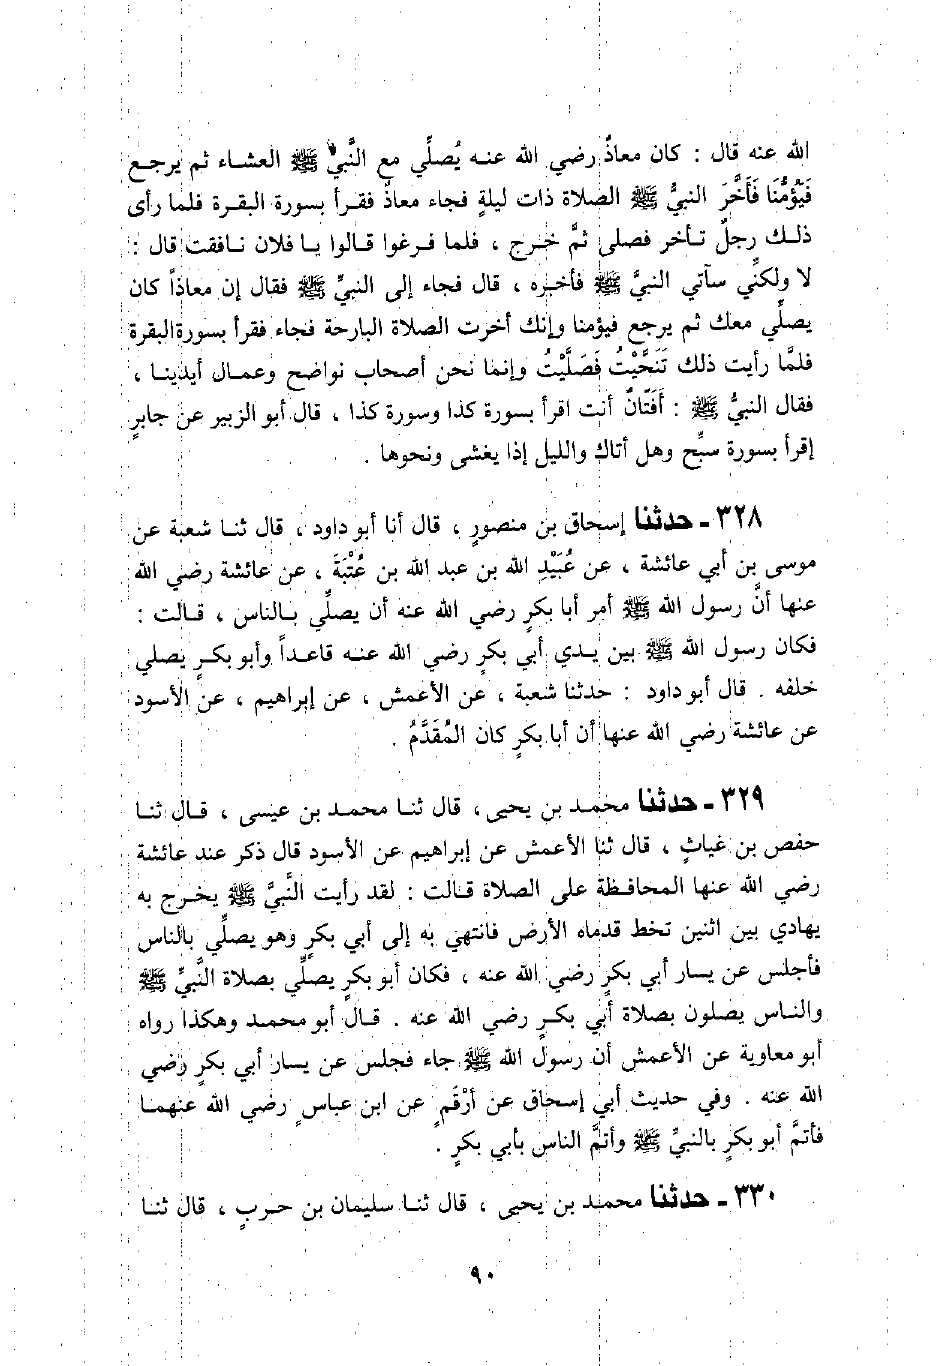 الله عنه قال : كان معاذٌ رضي الله عنه يُصلِّي مع النَّبيِّ ﷺ العشاء ثم يرجع
فَيَؤُمُّنَا فَأَخَّرَ النبيُّ ﷺ الصلاة ذات ليلةٍ فجاء معاذٌ فقرأ بسورة البقرة فلما رأى
ذلك رجلٌ تأخر فصلى ثمَّ خرج ، فلما فرغوا قالوا يا فلان نافقت قال :
لا ولكنِّي سآتي النبيَّ ﷺ فأخبره ، قال فجاء إلى النبيِّ ﷺ فقال إن معاذاً كان
يصلِّي معك ثم يرجع فيؤمنا وإنك أخرت الصلاة البارحة فجاء فقرأ بسورة البقرة
فلمَّا رأيت ذلك تَنَحَّيْتُ فَصَلَّيْتُ وإنما نحن أصحاب نواضح وعمال أيدينا ،
فقال النبيُّ ﷺ : أَفَتَّانٌ أنت اقرأ بسورة كذا وسورة كذا ، قال أبو الزبير عن جابرٍ
إقرأ بسورة سبِّح وهل أتاك والليل إذا يغشى ونحوها .
٣٢٨ ـ حدثنا إسحاق بن منصورٍ ، قال أنا أبو داود ، قال ثنا شعبة عن
موسى بن أبي عائشة ، عن عُبَيْدِ الله بن عبد الله بن عُتْبَةَ ، عن عائشة رضي الله
عنها أنَّ رسول الله ﷺ أمر أبا بكرٍ رضي الله عنه أن يصلِّي بالناس ، قالت :
فكان رسول الله ﷺ بين يدي أبي بكرٍ رضي الله عنه قاعداً وأبو بكرٍ يصلي
خلفه . قال أبو داود : حدثنا شعبة ، عن الأعمش ، عن إبراهيم ، عن الأسود
عن عائشة رضي الله عنها أن أبا بكرٍ كان المُقَدَّمُ .
٣٢٩ ـ حدثنا محمد بن يحيى ، قال ثنا محمد بن عيسى ، قال ثنا
حفص بن غياثٍ ، قال ثنا الأعمش عن إبراهيم عن الأسود قال ذكر عند عائشة
رضي الله عنها المحافظة على الصلاة قالت : لقد رأيت النَّبيَّ ﷺ يخرج به
يهادي بين اثنين تخط قدماه الأرض فانتهي به إلى أبي بكرٍ وهو يصلِّي بالناس
فأجلس عن يسار أبي بكرٍ رضي الله عنه ، فكان أبو بكرٍ يصلِّي بصلاة النَّبيِّ ﷺ
والناس يصلون بصلاة أبي بكرٍ رضي الله عنه . قال أبو محمد وهكذا رواه
أبو معاوية عن الأعمش أن رسول الله ﷺ جاء فجلس عن يسار أبي بكرٍ رضي
الله عنه . وفي حديث أبي إسحاق عن أَرْقَمٍ عن ابن عباسٍ رضي الله عنهما
فأتمَّ أبو بكرٍ بالنبيِّ ﷺ وأتمَّ الناس بأبي بكرٍ .
٣٣٠ ـ حدثنا محمد بن يحيى ، قال ثنا سليمان بن حربٍ ، قال ثنا
٩٠